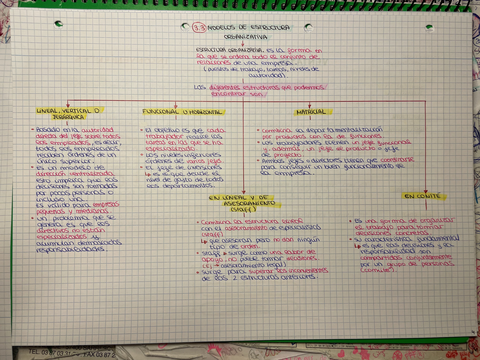 3.3 MODELOS DE ESTRUCTURA
ORGANIZATIVA
ESTRUCTURA ORGANIZATIVA: es la forma en
la que se ordena todo el conjunto de
relaciones de una empresa
(puestos de trabajo, tareas, niveles de
autoridad)
Las diferentes estructuras que podemos
encontrar son:
LINEAL, VERTICAL O
JERÁRQUICA
• Basado en la autoridad
directa del jefe sobre todos
los empleados, es decir,
todos los empleados
reciben órdenes de un
único superior.
• Es un modelo de
dirección centralizada.
Esto implica que las
decisiones son tomadas
por pocas personas o
incluso una.
• Es válido para empresas
pequeñas y medianas
• Un problema que se
genera es que los
directivos no están
especializados y
acumulan demasiadas
responsabilidades.
FUNCIONAL U HORIZONTAL
• El objetivo es que cada
trabajador realice la
tarea en la que se ha
especializado.
• Los niveles inferiores
dependen de varios jefes
• El jefe de
es el que decide el
nivel de gasto de todos
los departamentos.
MATRICIAL
• Combina la departamentalización
por productos con la de funciones
• Los trabajadores tienen un jefe funcional
y, además, un jefe de producto o jefe
de proyecto.
• Ambos jefes o directores tienen que coordinarse
para conseguir un buen funcionamiento de
la empresa.
EN LINEAL Y DE
ASESORAMIENTO
(STAFF)
• Combina la estructura
con el asesoramiento de especialistas
(staff)
↳ que asesoran pero no dan ningún
tipo de orden.
• Staff → surge como una labor de
apoyo, no puede tomar decisiones
(ej → asesoramiento legal)
• Surge para superar los inconvenientes
de las 2 estructuras anteriores.
EN COMITÉ
• Es una forma de organizar
el trabajo para tomar
decisiones concretas.
• Su característica fundamental
↳ es que las decisiones y la
responsabilidad son
compartidas conjuntamente
por un grupo de personas
(comité)